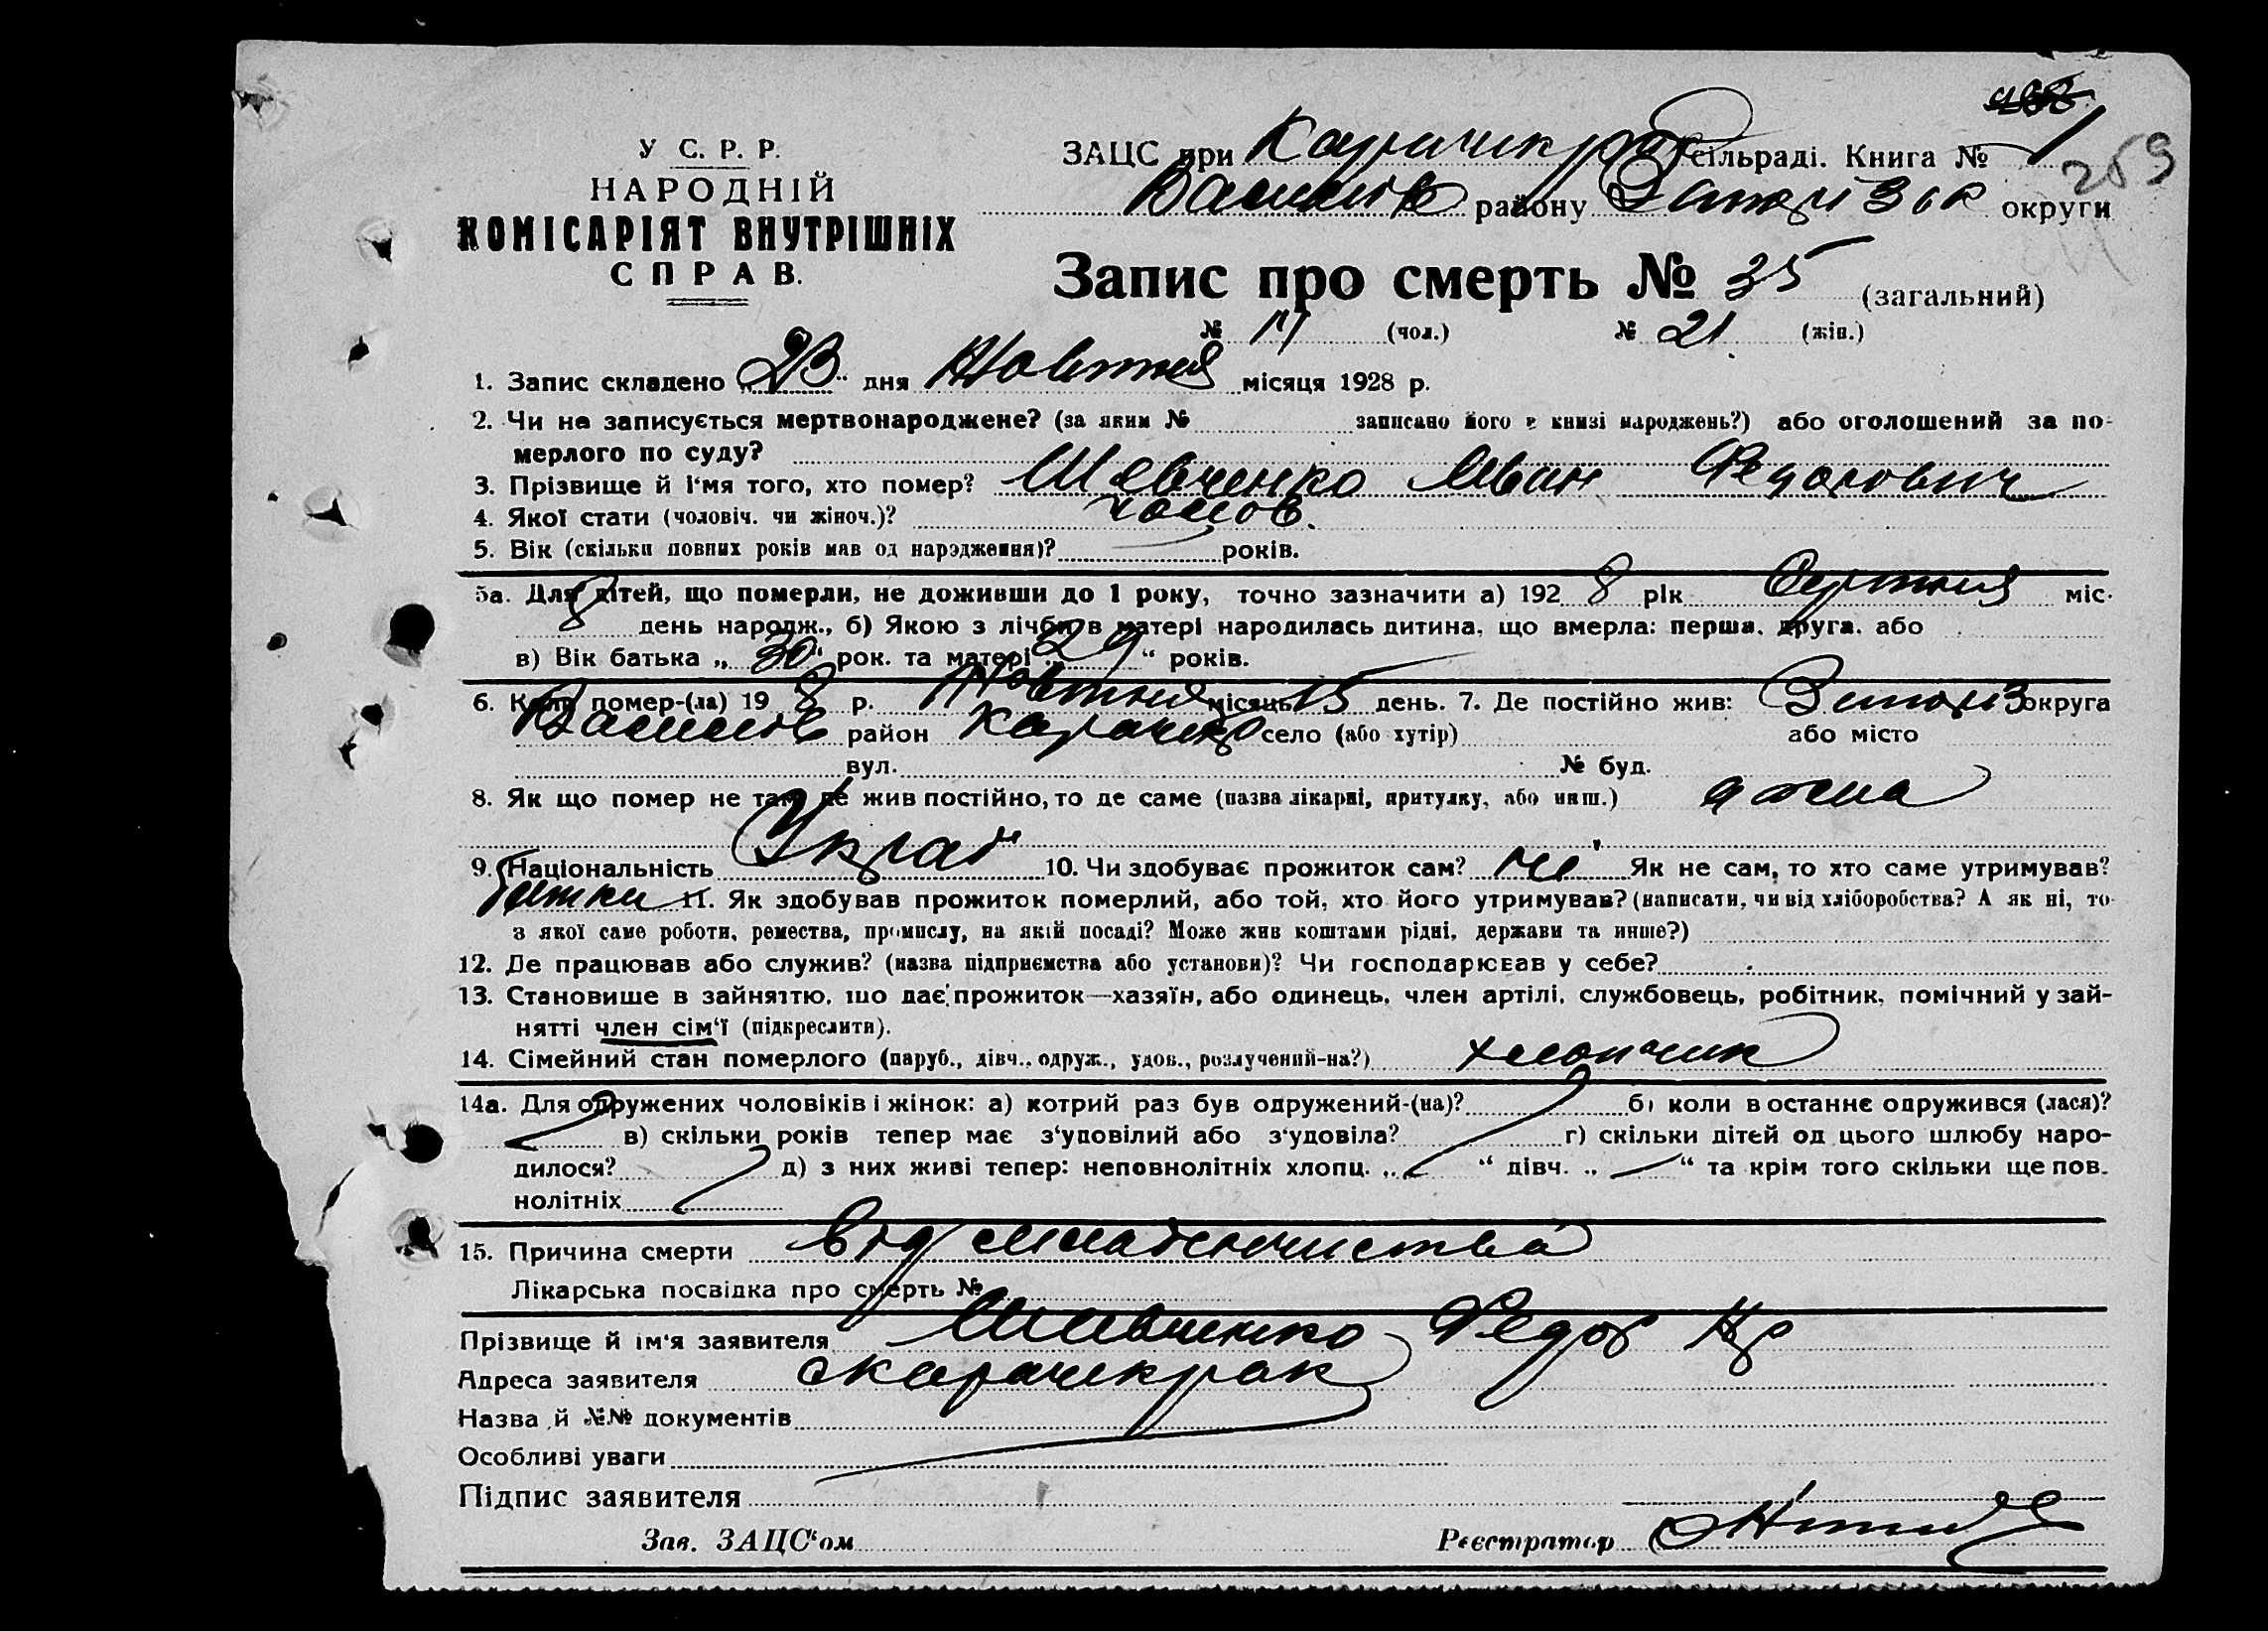 У С. Р. Р.
НАРОДНІЙ
КОМІСАРІЯТ ВНУТРІШНІХ
СПРАВ.
ЗАЦС при Карачикрак сільраді. Книга № 1
269
Василів району Запоріз округи
Запис про смерть № 35 (загальний)
№ 14 (чол.) № 21. (жін.)
1. Запис складено „23“ дня Жовтня місяця 1928 р.
2. Чи не записується мертвонароджене? (за яким № записано його в книзі народжень?) або оголошений за по-
мерлого по суду?
3. Прізвище й і'мя того, хто помер? Шевченко Иван Федорович
4. Якої стати (чоловіч. чи жіноч.)? чолов.
5. Вік (скільки повних років мав од народження)? років.
5а. Для дітей, що померли, не доживши до 1 року, точно зазначити а) 1928 рік Серпня міс.
8 день народж., б) Якою з лічби в матері народилась дитина, що вмерла: перша, друга, або
в) Вік батька „30“ рок. та матері „29“ років.
6. Коли помер-(ла) 19 8 р. Жовтня місяць 15 день. 7. Де постійно жив: Запоріз округа
Василів район Карачикр село (або хутір) або місто
вул. № буд.
8. Як що помер не там де жив постійно, то де саме (назва лікарні, притулку, або инш.) дома
9. Національність Украї 10. Чи здобуває прожиток сам? ні Як не сам, то хто саме утримував?
батьки 11. Як здобував прожиток померлий, або той, хто його утримував? (написати, чи від хліборобства? А як ні, то
з якої саме роботи, ремества, промислу, на якій посаді? Може жив коштами рідні, держави та инше?)
12. Де працював або служив? (назва підприємства або установи)? Чи господарював у себе?
13. Становише в зайняттю, що дає прожиток—хазяїн, або одинець, член артілі, службовець, робітник, помічний у зай-
нятті член сім'ї (підкреслити).
14. Сімейний стан померлого (паруб., дівч., одруж., удов., розлучений-на?) хлопчик
14а. Для одружених чоловіків і жінок: а) котрий раз був одружений-(на)? б) коли в останнє одружився (лася)?
в) скільки років тепер має з'уповілий або з'удовіла? г) скільки дітей од цього шлюбу наро-
дилося? д) з них живі тепер: неповнолітніх хлопц. „ “ дівч. „ “ та крім того скільки ще пов.
нолітніх
15. Причина смерти від младенчиства
Лікарська посвідка про смерть №
Прізвище й ім'я заявителя Шевченко Федор
Адреса заявителя с Карачикрак
Назва й №№ документів
Особливі уваги
Підпис заявителя
Зав. ЗАЦС'ом Реєстратор